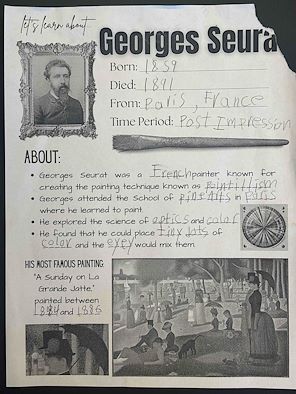 let's learn about
Georges Seura
Born: 1859
Died: 1891
From: Paris, France
Time Period: Post Impression
ABOUT:
• Georges Seurat was a French painter known for
creating the painting technique known as pointillism
• Georges attended the School of fine arts in Paris
where he learned to paint.
• He explored the science of optics and color
• He found that he could place tiny dots of
color and the eyes would mix them.
HIS MOST FAMOUS PAINTING:
"A Sunday on La
Grande Jatte,"
painted between
1884 and 1886